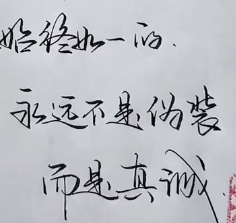 始终如一的.
永远不是伪装
而是真诚.